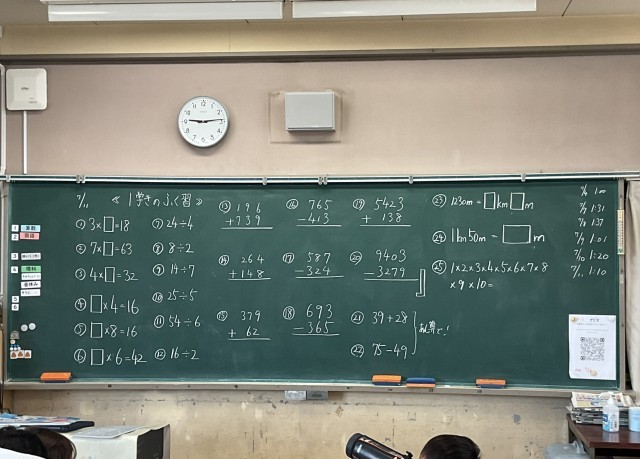 7/11 《1学きのふく習》
① 3×□=18
② 7×□=63
③ 4×□=32
④ □×4=16
⑤ □×8=16
⑥ □×6=42
⑦ 24÷4
⑧ 8÷2
⑨ 14÷7
⑩ 25÷5
⑪ 54÷6
⑫ 16÷2
⑬ 196
+739
⑭ 264
+148
⑮ 379
+ 62
⑯ 765
-413
⑰ 587
-324
⑱ 693
-365
⑲ 5423
+ 138
⑳ 9403
-3279
㉑ 39+28
㉒ 75-49
暗算で!
㉓ 1230m=□km□m
㉔ 1km50m=□m
㉕ 1×2×3×4×5×6×7×8
×9×10=
1:00
1:31
1:37
1:01
1:20
7/11 1:10
1 算数
2 国語
3
4 理科
昼休み
5